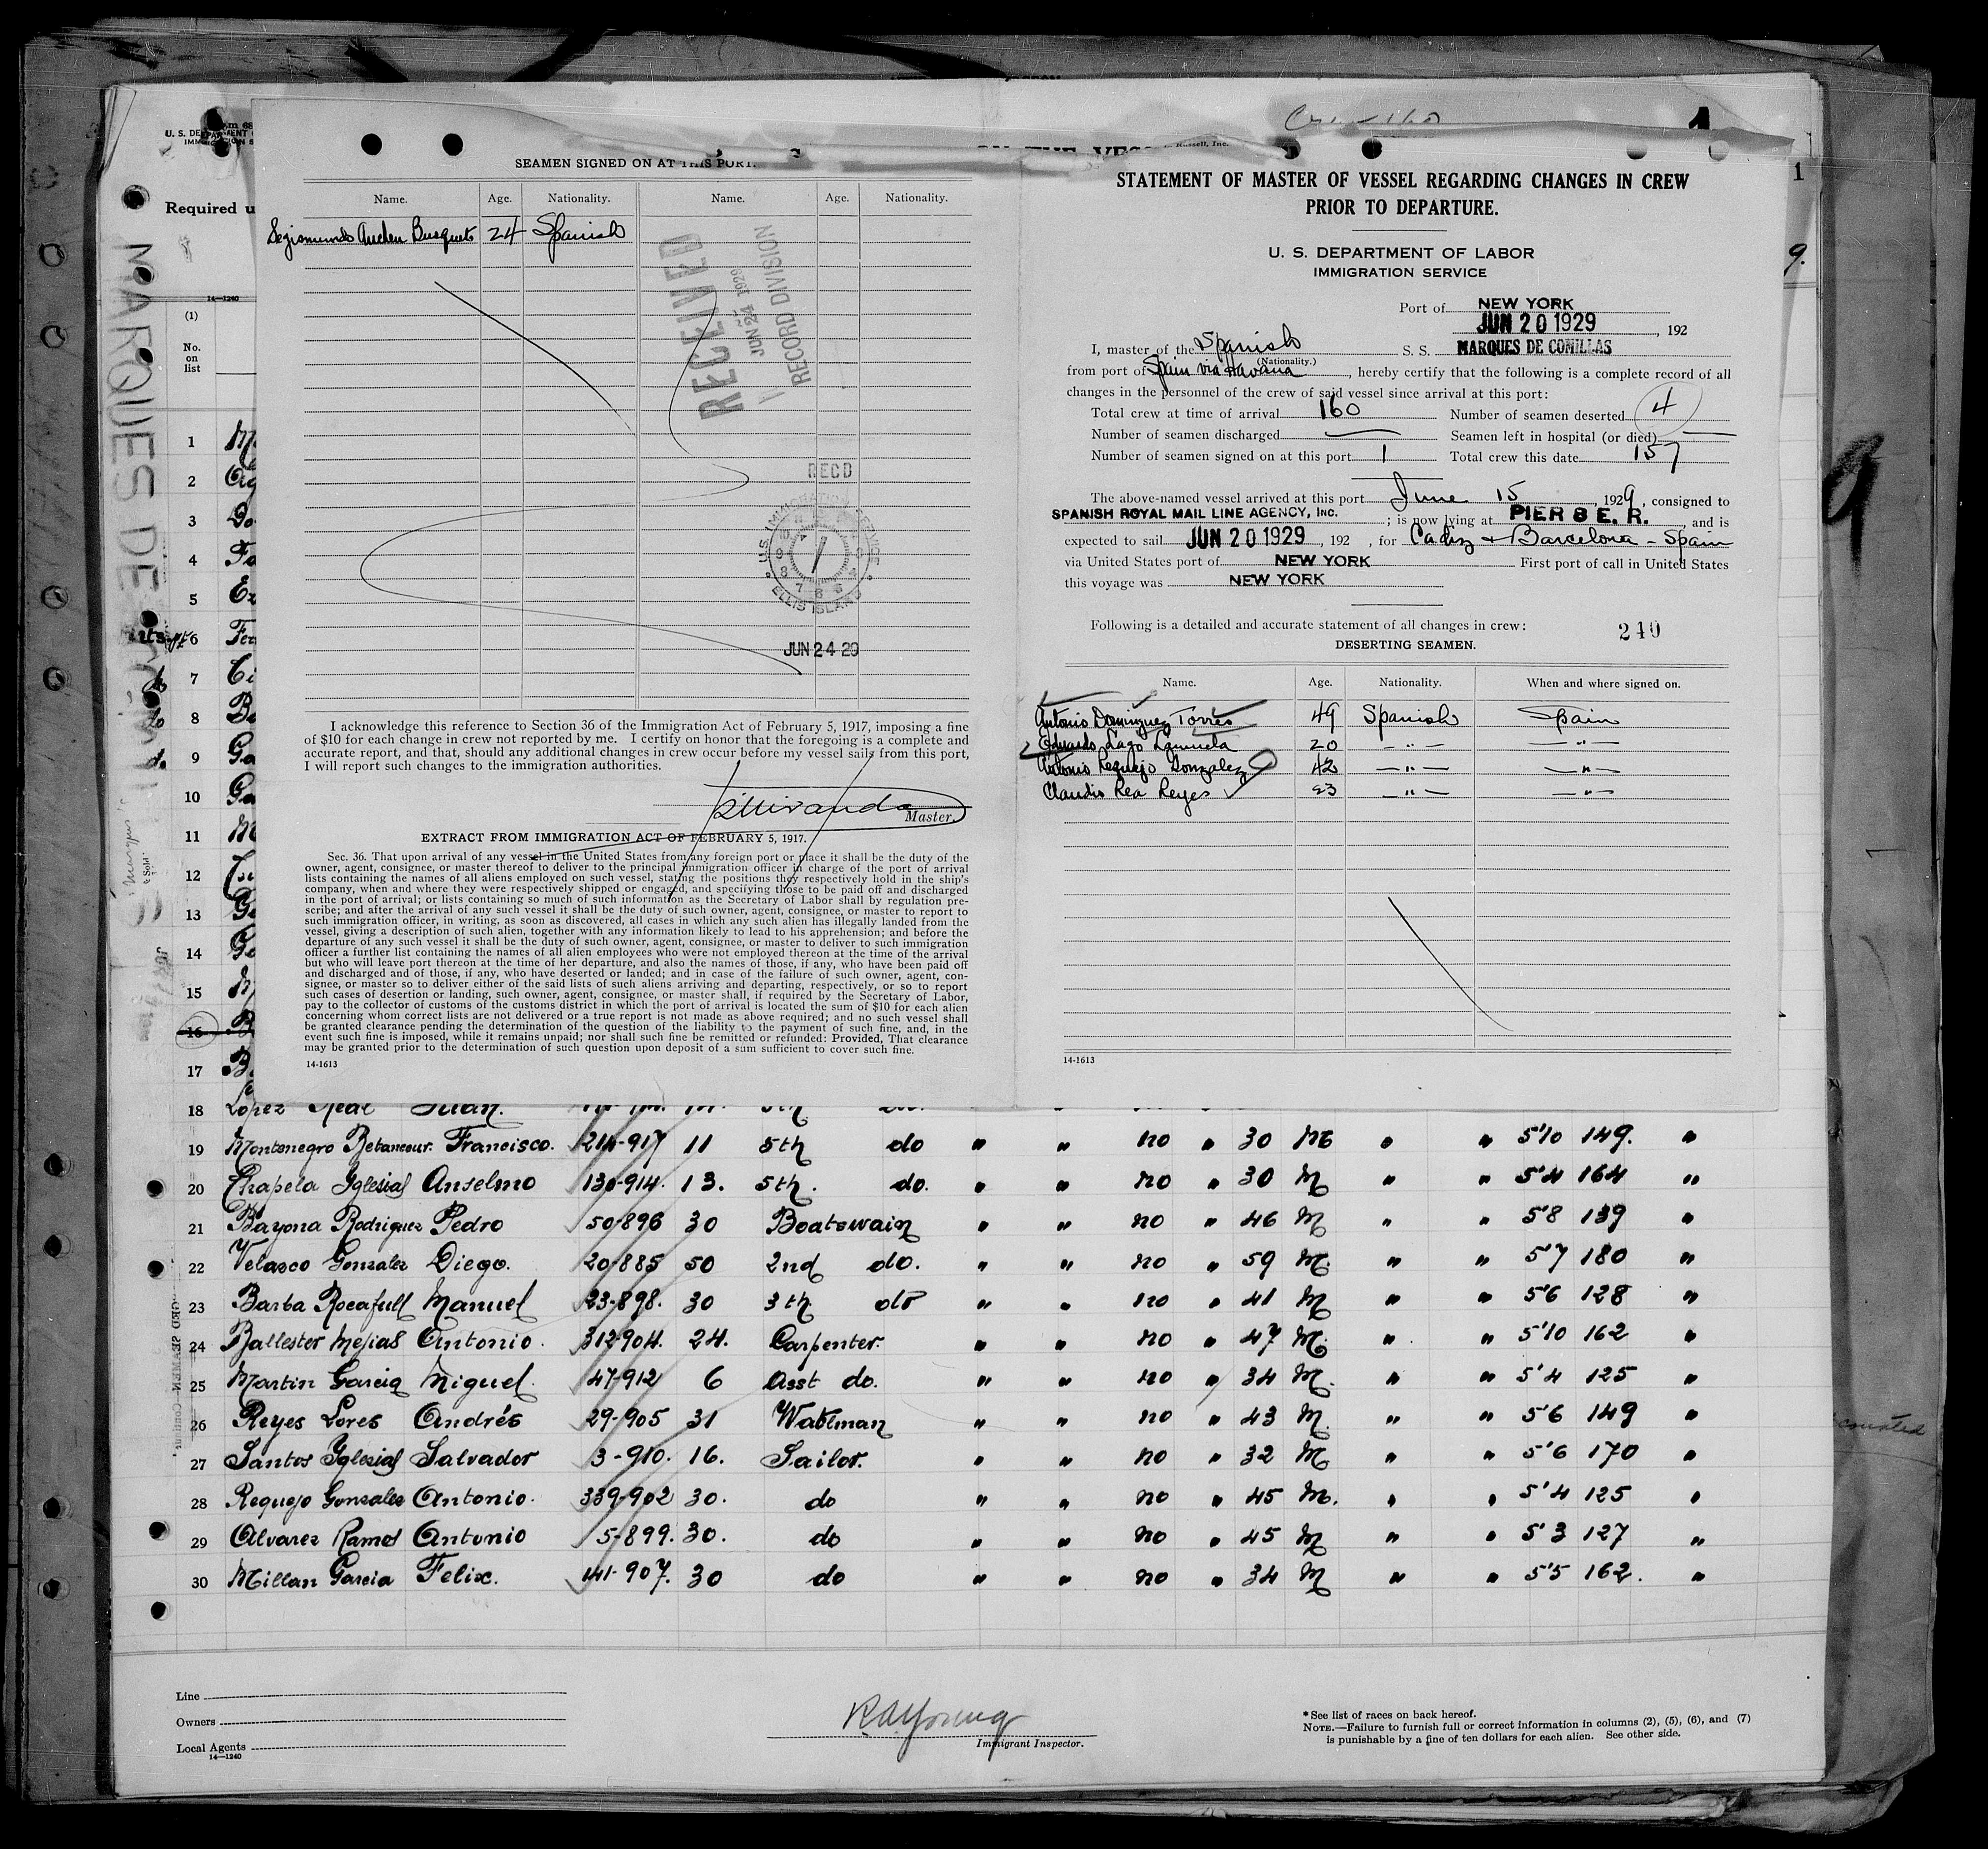 U. S. DEPARTMENT
Required u
14—1240
(1)
No.
on
list
MARQUES DE
SEAMEN SIGNED ON AT THIS PORT.
Name. Age. Nationality. Name. Age. Nationality.
Segismundo Busquets 24 Spanish
RECEIVED
JUN 24 1929
RECORD DIVISION
RECD
U.S. IMMIGRATION SERVICE
ELLIS ISLAND
JUN 24 29
I acknowledge this reference to Section 36 of the Immigration Act of February 5, 1917, imposing a fine
of $10 for each change in crew not reported by me. I certify on honor that the foregoing is a complete and
accurate report, and that, should any additional changes in crew occur before my vessel sails from this port,
I will report such changes to the immigration authorities.
Miranda
Master.
EXTRACT FROM IMMIGRATION ACT OF FEBRUARY 5, 1917.
Sec. 36. That upon arrival of any vessel in the United States from any foreign port or place it shall be the duty of the
owner, agent, consignee, or master thereof to deliver to the principal immigration officer in charge of the port of arrival
lists containing the names of all aliens employed on such vessel, stating the positions they respectively hold in the ship's
company, when and where they were respectively shipped or engaged, and specifying those to be paid off and discharged
in the port of arrival; or lists containing so much of such information as the Secretary of Labor shall by regulation pre-
scribe; and after the arrival of any such vessel it shall be the duty of such owner, agent, consignee, or master to report to
such immigration officer, in writing, as soon as discovered, all cases in which any such alien has illegally landed from the
vessel, giving a description of such alien, together with any information likely to lead to his apprehension; and before the
departure of any such vessel it shall be the duty of such owner, agent, consignee, or master to deliver to such immigration
officer a further list containing the names of all alien employees who were not employed thereon at the time of the arrival
but who will leave port thereon at the time of her departure, and also the names of those, if any, who have been paid off
and discharged and of those, if any, who have deserted or landed; and in case of the failure of such owner, agent, con-
signee, or master so to deliver either of the said lists of such aliens arriving and departing, respectively, or so to report
such cases of desertion or landing, such owner, agent, consignee, or master shall, if required by the Secretary of Labor,
pay to the collector of customs of the customs district in which the port of arrival is located the sum of $10 for each alien
concerning whom correct lists are not delivered or a true report is not made as above required; and no such vessel shall
be granted clearance pending the determination of the question of the liability to the payment of such fine, and, in the
event such fine is imposed, while it remains unpaid; nor shall such fine be remitted or refunded: Provided, That clearance
may be granted prior to the determination of such question upon deposit of a sum sufficient to cover such fine.
14-1613
STATEMENT OF MASTER OF VESSEL REGARDING CHANGES IN CREW
PRIOR TO DEPARTURE.
U. S. DEPARTMENT OF LABOR
IMMIGRATION SERVICE
Port of NEW YORK
JUN 20 1929, 192
I, master of the Spanish S. S. MARQUES DE COMILLAS
(Nationality.)
from port of Spain via Havana, hereby certify that the following is a complete record of all
changes in the personnel of the crew of said vessel since arrival at this port:
Total crew at time of arrival 160 Number of seamen deserted 4
Number of seamen discharged — Seamen left in hospital (or died) —
Number of seamen signed on at this port 1 Total crew this date 157
The above-named vessel arrived at this port June 15, 1929, consigned to
SPANISH ROYAL MAIL LINE AGENCY, Inc. ; is now lying at PIER 8 E. R., and is
expected to sail JUN 20 1929, 192 , for Cadiz + Barcelona - Spain
via United States port of NEW YORK First port of call in United States
this voyage was NEW YORK
Following is a detailed and accurate statement of all changes in crew: 240
DESERTING SEAMEN.
Name. Age. Nationality. When and where signed on.
Antonio Dominguez Torres 49 Spanish Spain
Eduardo Lago 20 — " — — " —
Antonio Requejo Gonzalez 42 — " — — " —
Claudio Rea Reyes 23 — " — — " —
14-1613
1
2
3
4
5
6
7
8
9
10
11
12
13
14
15
16
17
18 Lopez Real Juan.
19 Montenegro Betancour. Francisco. 211-917 11 5th do " " no " 30 M " " 5'10 149. "
20 Chapela Iglesias Anselmo 130-914. 13. 5th. do. " " no " 30 M " " 5'4 164 "
21 Bayona Rodriguez Pedro 50-896 30 Boatswain " " no " 46 M " " 5'8 139 "
22 Velasco Gonzalez Diego. 20-885 50 2nd do. " " no " 59 M. " " 5'7 180 "
23 Barba Rocafull Manuel 23-898. 30 3th do " " no " 41 M " " 5'6 128 "
24 Ballester Mejias Antonio. 312-904. 24. Carpenter. " " no " 47 M. " " 5'10 162 "
25 Martin Garcia Miguel. 47-912 6 Asst do. " " no " 34 M. " " 5'4 125 "
26 Reyes Lores Andrés 29-905 31 Watman " " no " 43 M. " " 5'6 149 "
27 Santos Iglesias Salvador 3-910. 16. Sailor. " " no " 32 M " " 5'6 170 "
28 Requejo Gonzalez Antonio. 339-902 30. do " " no " 45 M. " " 5'4 125 "
29 Alvarez Ramos Antonio 5-899. 30. do " " no " 45 M " " 5'3 127 "
30 Millan Garcia Felix. 141-907. 30 do " " no " 34 M " " 5'5 162. "
Line
Owners
Local Agents
14—1240
RA Young
Immigrant Inspector.
* See list of races on back hereof.
NOTE.—Failure to furnish full or correct information in columns (2), (5), (6), and (7)
is punishable by a fine of ten dollars for each alien. See other side.